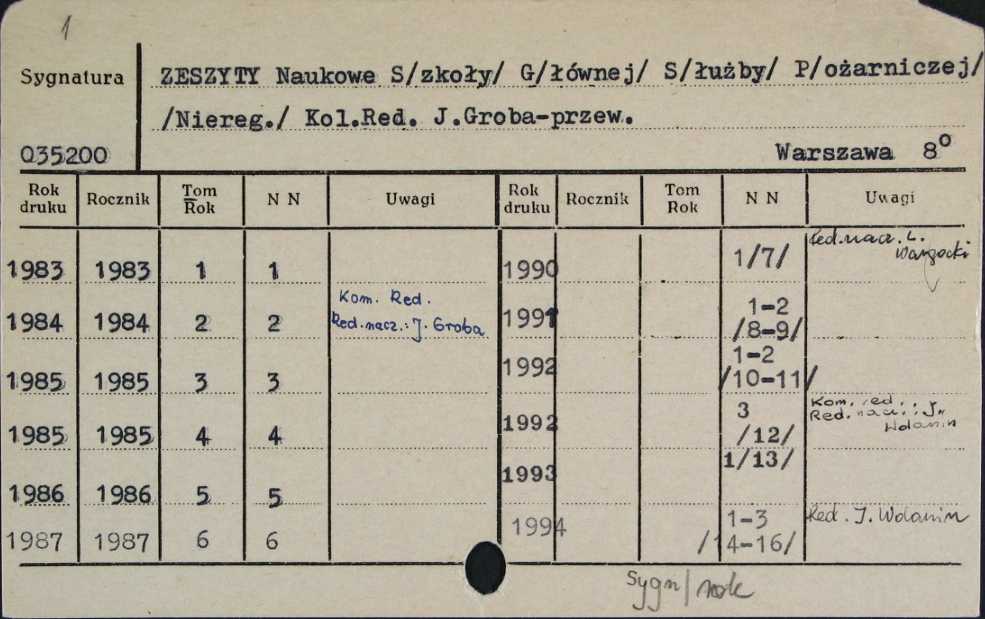 1
Sygnatura ZESZYTY Naukowe S/zkoły/ G/łównej/ S/łużby/ P/ożarniczej/
/Niereg./ Kol.Red. J.Groba-przew.
Q35200 Warszawa 8º
Rok druku Rocznik Tom Rok N N Uwagi Rok druku Rocznik Tom Rok N N Uwagi
1983 1983 1 1 1990 1/7/ Red.nacz. L. Wargocki
1984 1984 2 2 Kom. Red. Red.nacz.: J. Groba 1991 1-2 /8-9/
1985 1985 3 3 1992 1-2 /10-11/
1985 1985 4 4 1992 3 /12/ Kom. red. Red. nacz.: J. Wolanin
1986 1986 5 5 1993 1/13/
1987 1987 6 6 1994 1-3 /14-16/ Red. J. Wolanin
Sygn/rok